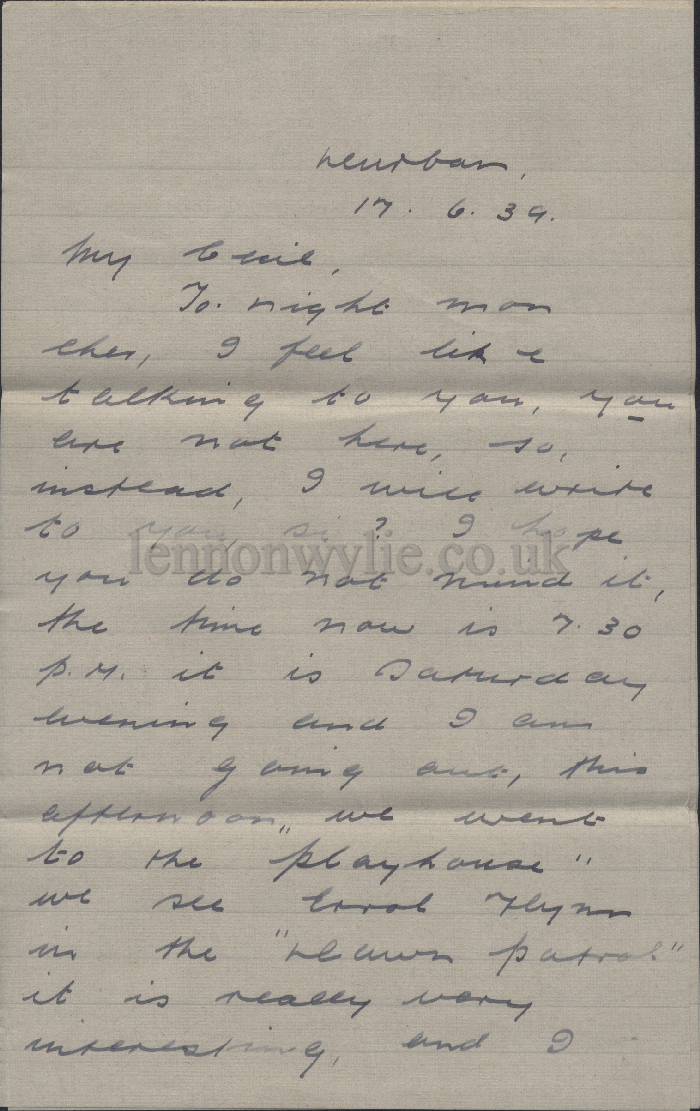 Durban,
17. 6. 39.
My Cecil,
To. night mon
cher, I feel like
talking to you, you
are not here, so,
instead, I will write
to you, si? I hope
lennonwylie.co.uk
you do not mind it,
the time now is 7.30
p.m. it is Saturday
evening and I am
not going out, this
afternoon,, we went
to the playhouse"
we see Errol Flynn
in the "Dawn patrol"
it is really very
interesting, and I